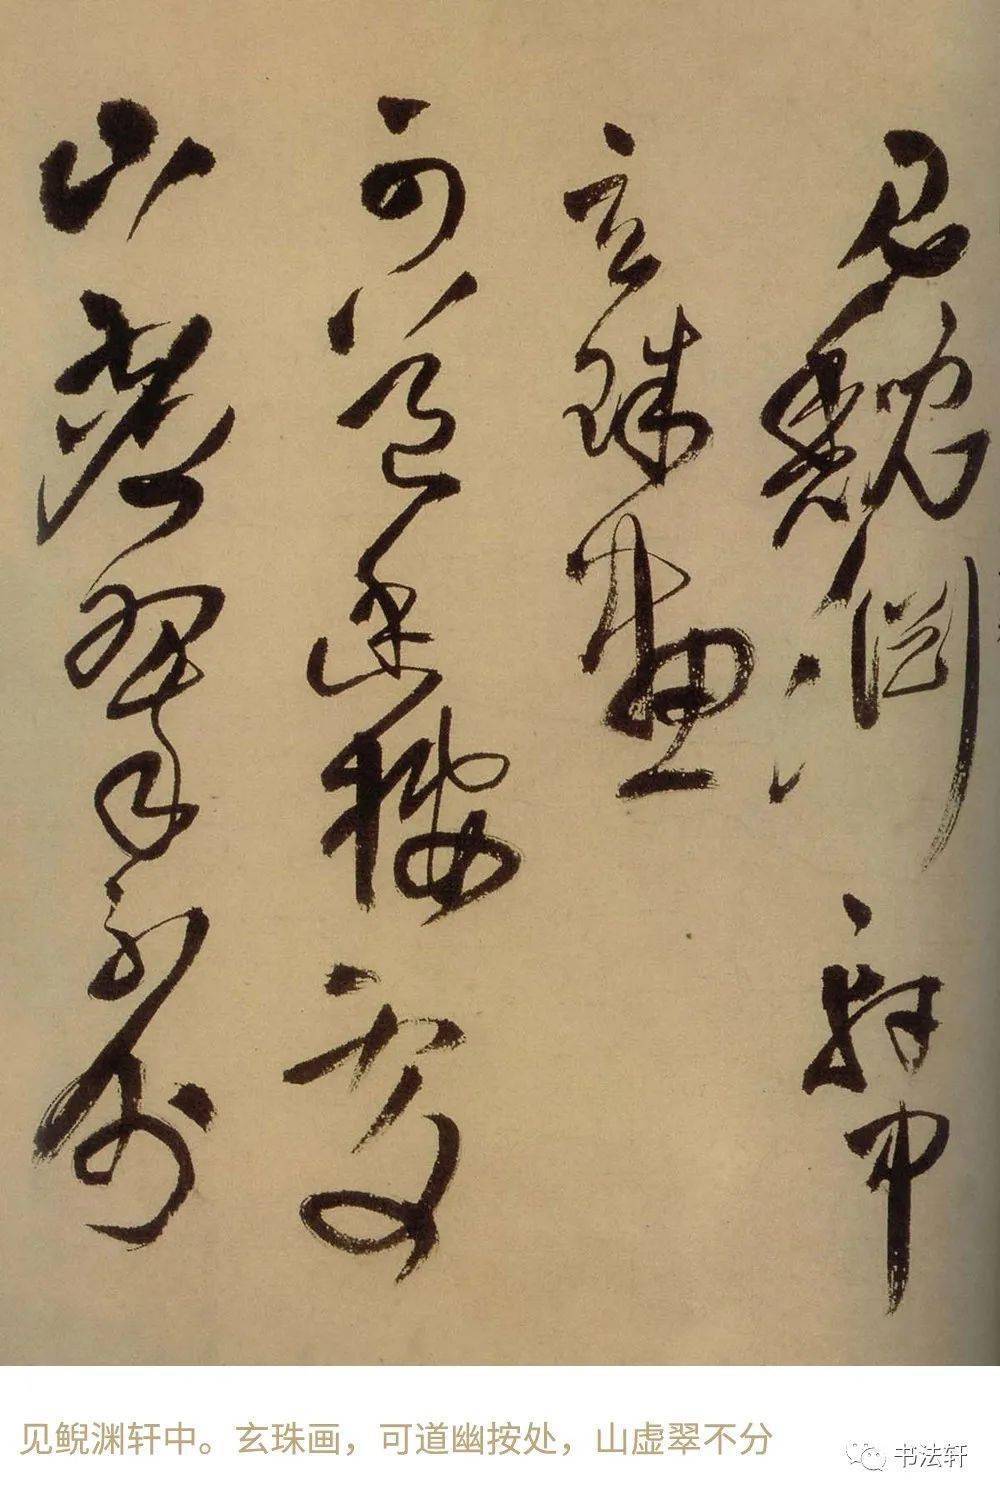 淵軒中
玄珠畫
可道幽處
山翠不分
见鲵渊轩中。玄珠画，可道幽按处，山虚翠不分
书法轩